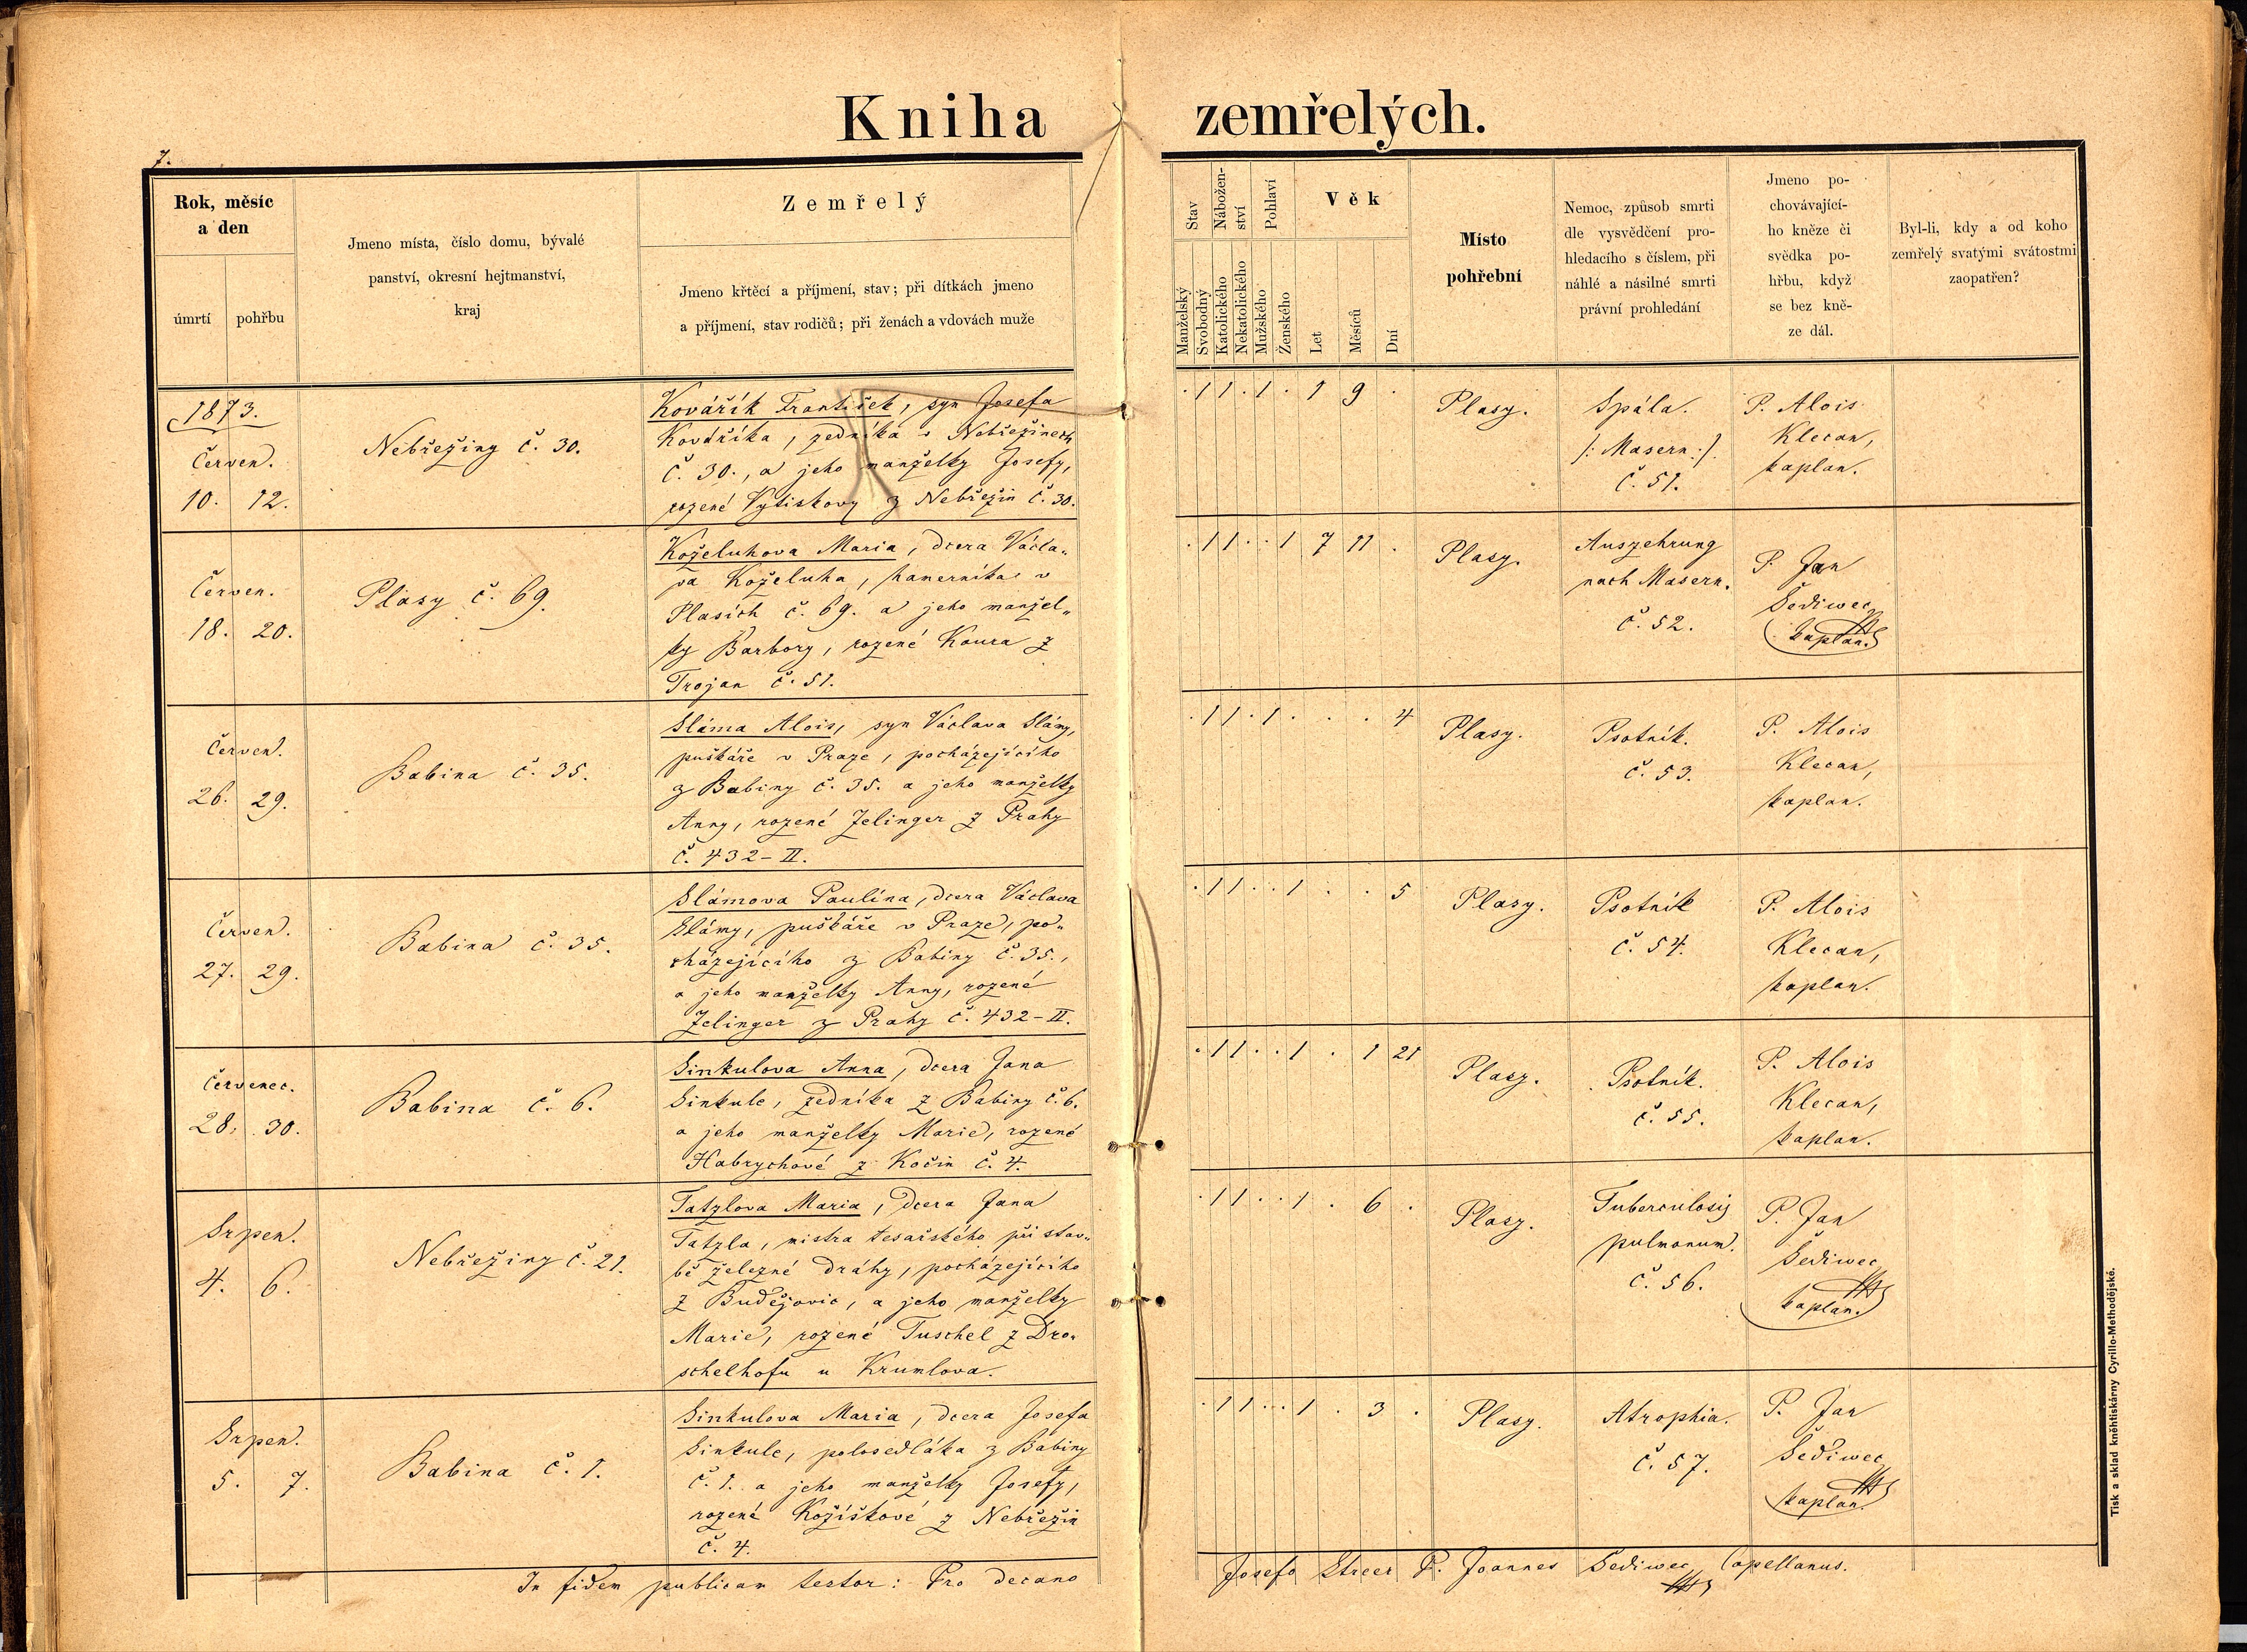 Kniha zemřelých.
7.
Rok, měsíc
a den
úmrtí
pohřbu
Jmeno místa, číslo domu, bývalé
panství, okresní hejtmanství,
kraj
Zemřelý
Jmeno křtěcí a příjmení, stav; při dítkách jmeno
a příjmení, stav rodičů; při ženách a vdovách muže
Stav
Nábožen-
ství
Pohlaví
Věk
Manželský
Svobodný
Katolického
Nekatolického
Mužského
Ženského
Let
Měsíců
Dní
Místo
pohřební
Nemoc, způsob smrti
dle vysvědčení pro-
hledacího s číslem, při
náhlé a násilné smrti
právní prohledání
Jmeno po-
chovávající-
ho kněze či
svědka po-
hřbu, když
se bez kně-
ze dál.
Byl-li, kdy a od koho
zemřelý svatými svátostmi
zaopatřen?
1873.
Červen.
10. 12.
Nebřeziny č. 30.
Kovářík František, syn Josefa
Kovaříka, zedníka v Nebřezinech
č. 30., a jeho manželky Josefy,
rozené Vytiskovy z Nebřezin č. 30.
. 1 1 . 1 . 1 9 .
Plasy.
Spála.
/: Masern :/.
č. 51.
P. Alois
Klecan,
kaplan.
Červen.
18. 20.
Plasy č. 69.
Koželuhova Maria, dcera Václa„
va Koželuha, hamerníka v
Plasích č. 69. a jeho manžel„
ky Barbory, rozené Koura z
Trojan č. 51.
. 1 1 . . 1 7 11 .
Plasy.
Auszehrung
nach Masern.
č. 52.
P. Jan
Šediwec
kaplan.
Červen.
26. 29.
Babina č. 35.
Sláma Alois, syn Václava Slámy,
puškáře v Praze, pocházejícího
z Babiny č. 35. a jeho manželky
Anny, rozené Jelinger z Prahy
č. 432-II.
. 1 1 . 1 . . . 4
Plasy.
Psotník.
č. 53.
P. Alois
Klecan,
kaplan.
Červen.
27. 29.
Babina č. 35.
Slámova Paulína, dcera Václava
Slámy, puškáře v Praze, po„
cházejícího z Babiny č. 35.,
a jeho manželky Anny, rozené
Jelinger z Prahy č. 432-II.
. 1 1 . . 1 . . 5
Plasy.
Psotník
č. 54.
P. Alois
Klecan,
kaplan.
Červenec.
28. 30.
Babina č. 6.
Sinkulova Anna, dcera Jana
Sinkule, zedníka z Babiny č. 6.
a jeho manželky Marie, rozené
Habrychové z Kočin č. 4.
. 1 1 . . 1 . 1 21
Plasy.
Psotník.
č. 55.
P. Alois
Klecan,
kaplan.
Srpen.
4. 6.
Nebřeziny č. 21.
Tatzlova Maria, dcera Jana
Tatzla, mistra tesařského při stav„
bě železné dráhy, pocházejícího
z Budějovic, a jeho manželky
Marie, rozené Tuschel z Dro„
schelhofu u Krumlova.
. 1 1 . . 1 . 6 .
Plasy.
Tuberculosis
pulmonum.
č. 56.
P. Jan
Šediwec
kaplan.
Srpen.
5. 7.
Babina č. 1.
Sinkulova Maria, dcera Josefa
Sinkule, polosedláka z Babiny
č. 1. a jeho manželky Josefy,
rozené Kožíškové z Nebřezin
č. 4.
. 1 1 . . . 1 . 3 .
Plasy.
Atrophia.
č. 57.
P. Jan
Šediwec
kaplan.
In fidem publicam testor: Pro decano Josefo Streer P. Joannes Šediwec Capellanus.
Tisk a sklad kněhtiskárny Cyrillo-Methodějské.